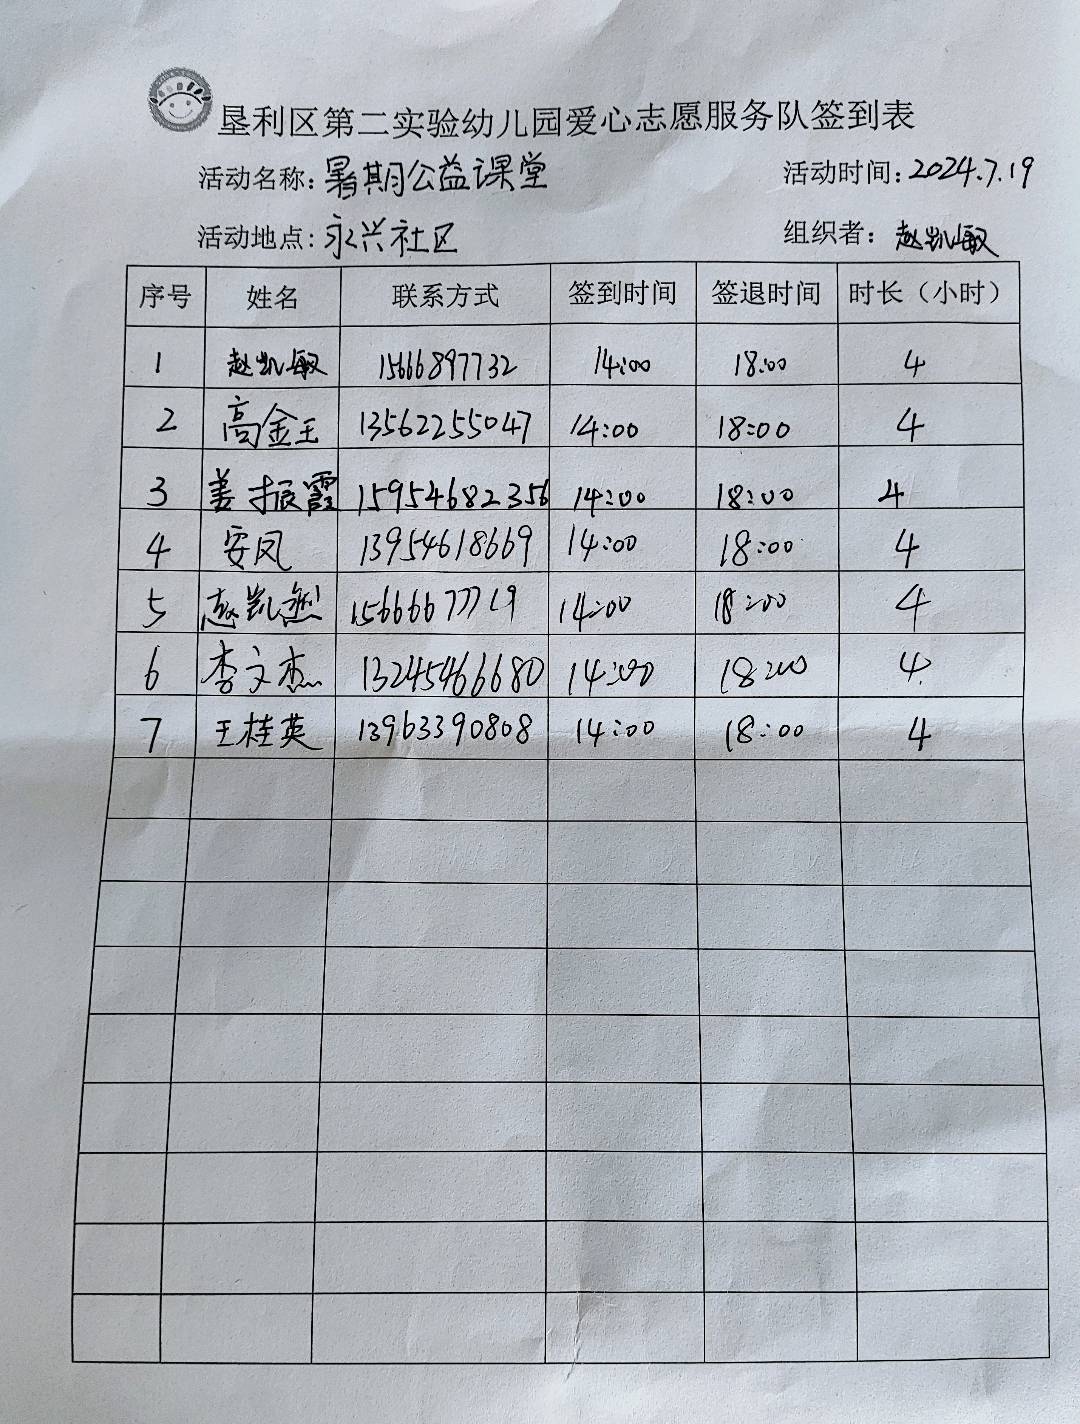 垦利区第二实验幼儿园爱心志愿服务队签到表
活动名称：暑期公益课堂 活动时间：2024.7.19
活动地点：永兴社区 组织者：赵凯敏
序号 姓名 联系方式 签到时间 签退时间 时长（小时）
1 赵凯敏 15666897732 14:00 18:00 4
2 高金玉 13562255047 14:00 18:00 4
3 姜振霞 15954682356 14:00 18:00 4
4 安凤 13954618669 14:00 18:00 4
5 赵凯 14:00 18:00 4
6 李文杰 13245466680 14:00 18:00 4
7 王桂英 13963390808 14:00 18:00 4